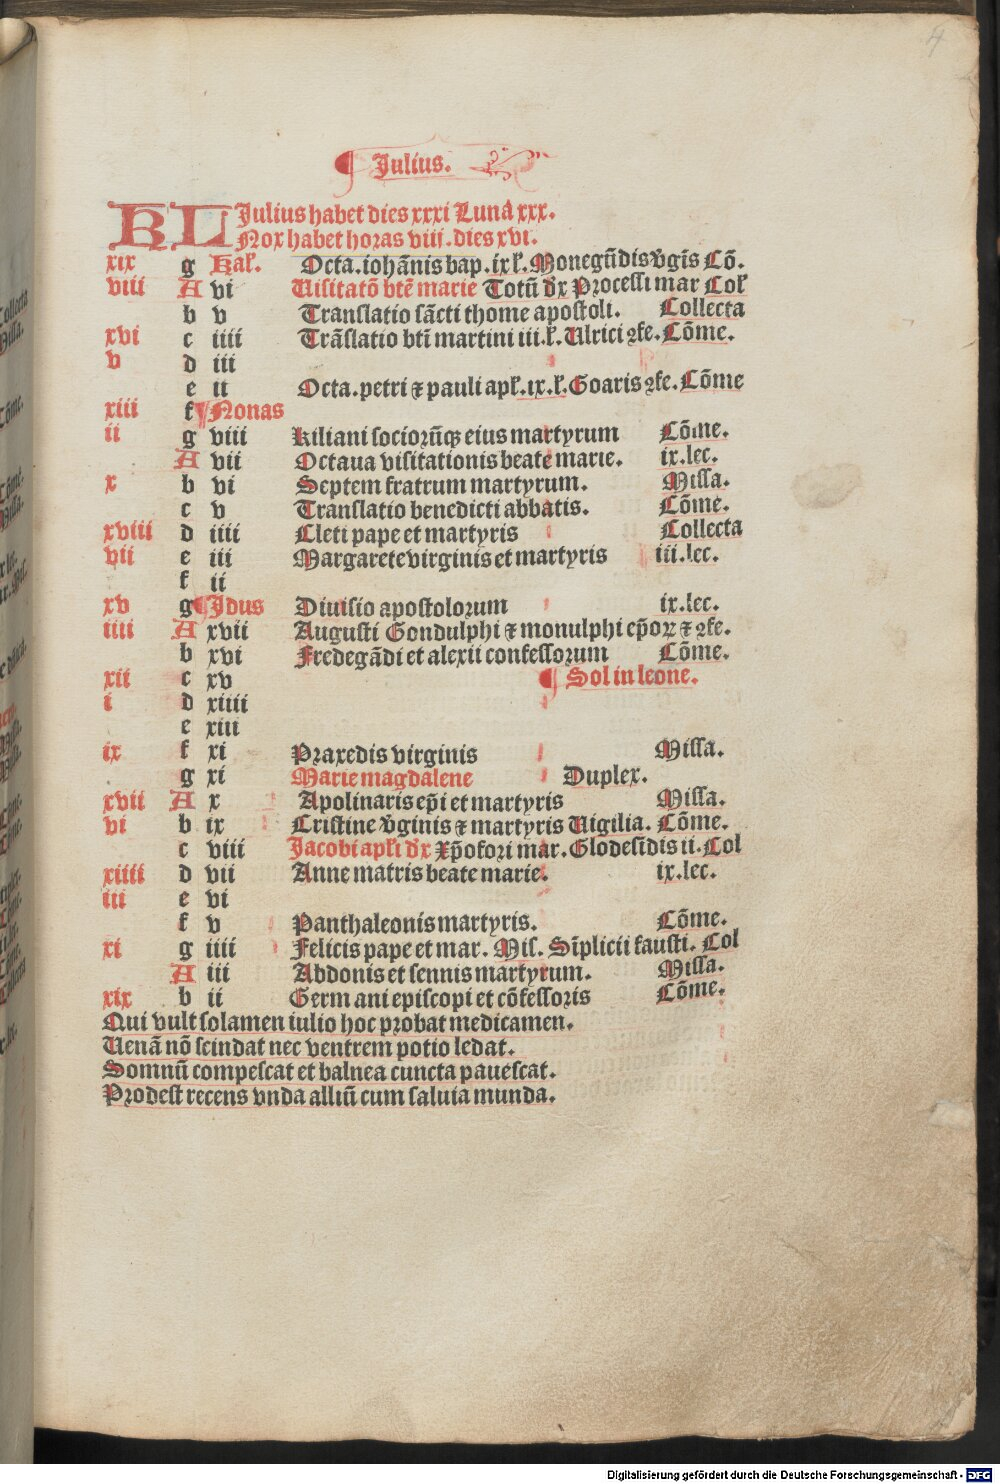 4
Julius.
KL Julius habet dies xxxi Luna xxx.
Nox habet horas viii. dies xvi.
xix g Kal. Octa. iohãnis bap. ix ł. Monegũdis v̄gĩs Cõ.
viii A vi Uisitatõ btẽ marie Totũ dx Processi mar Col
b v Translatio sãcti thome apostoli. Collecta
xvi c iiii Trãslatio btĩ martini iii. ł. Ulrici ꝛͨe. Cõme.
v d iii
e ii Octa. petri ⁊ pauli apł. ix. ł. Goaris ꝛͨe. Cõme
xiii f Nonas
ii g viii Kiliani sociorũqꝫ eius martyrum Cõme.
A vii Octaua visitationis beate marie. ix. lec.
x b vi Septem fratrum martyrum. Missa.
c v Translatio benedicti abbatis. Cõme.
xviii d iiii Cleti pape et martyris Collecta
vii e iii Margarete virginis et martyris iii. lec.
f ii
xv g Jdus Diuisio apostolorum ix. lec.
iiii A xvii Augusti Gondulphi ⁊ monulphi ep̃oꝝ ⁊ ꝛͨe.
b xvi Fredegãdi et alexii confessorum Cõme.
xii c xv Sol in leone.
i d xiiii
e xiii
ix f xi Praxedis virginis Missa.
g xi Marie magdalene Duplex.
xvii A x Apolinaris ep̃i et martyris Missa.
vi b ix Cristine v̄ginis ⁊ martyris Uigilia. Cõme.
c viii Jacobi apłi dx Xp̃ofori mar. Glodesidis ii. Col
xiiii d vii Anne matris beate marie. ix. lec.
iii e vi
f v Panthaleonis martyris. Cõme.
xi g iiii Felicis pape et mar. Mis. Sĩplicii fausti. Col
A iii Abdonis et sennis martyrum. Missa.
xix b ii Germ ani episcopi et cõfessoris Cõme.
Qui vult solamen iulio hoc probat medicamen.
Uenã nõ scindat nec ventrem potio ledat.
Somnũ compescat et balnea cuncta pauescat.
Prodest recens vnda alliũ cum saluia munda.
Digitalisierung gefördert durch die Deutsche Forschungsgemeinschaft - DFG